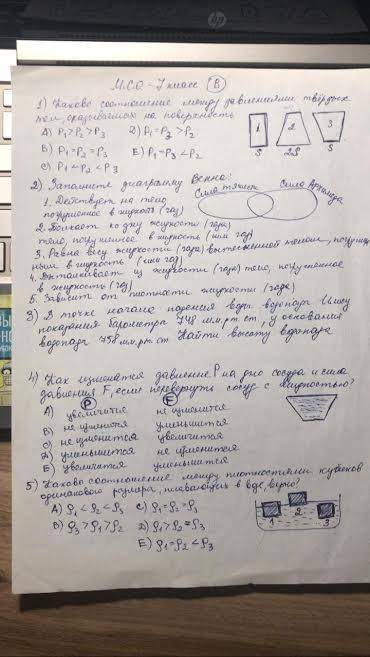 М.С.О - 7 класс (В)
1) Каково соотношение между давлениями твёрдых
тел, оказываемых на поверхность
А) P1>P2>P3 Д) P1=P3>P2
В) P1=P2=P3 Е) P1=P3<P2
С) P1<P2<P3
1 2 3
S 2S S
2) Заполните диаграмму Венна:
Сила тяжести Сила Архимеда
1. Действует на тело,
погруженное в жидкость (газ)
2. Толкает ко дну жидкости (газа)
тело, погруженное в жидкость (или газ)
3. Равна весу жидкости (газа) вытесненной телом, погружен-
ным в жидкость (или газ)
4. Выталкивает из жидкости (газа) тело, погруженное
в жидкость (газ)
5. Зависит от плотности жидкости (газа)
3) В точке начала падения воды водопада
показания барометра 748 мм.рт.ст, у основания
водопада 756 мм.рт.ст Найти высоту водопада
4) Как изменятся давление P на дно сосуда и сила
давления F, если перевернуть сосуд с жидкостью?
P F
А) увеличится не изменится
В) не изменится уменьшится
С) не изменится увеличится
Д) уменьшится не изменится
Е) увеличится уменьшится
5) Каково соотношение между плотностями кубиков
одинакового размера, плавающих в воде, верно?
А) ρ1<ρ2<ρ3 С) ρ1=ρ2=ρ3
В) ρ3>ρ1>ρ2 Д) ρ1>ρ2=ρ3
Е) ρ1=ρ2<ρ3
1 2 3